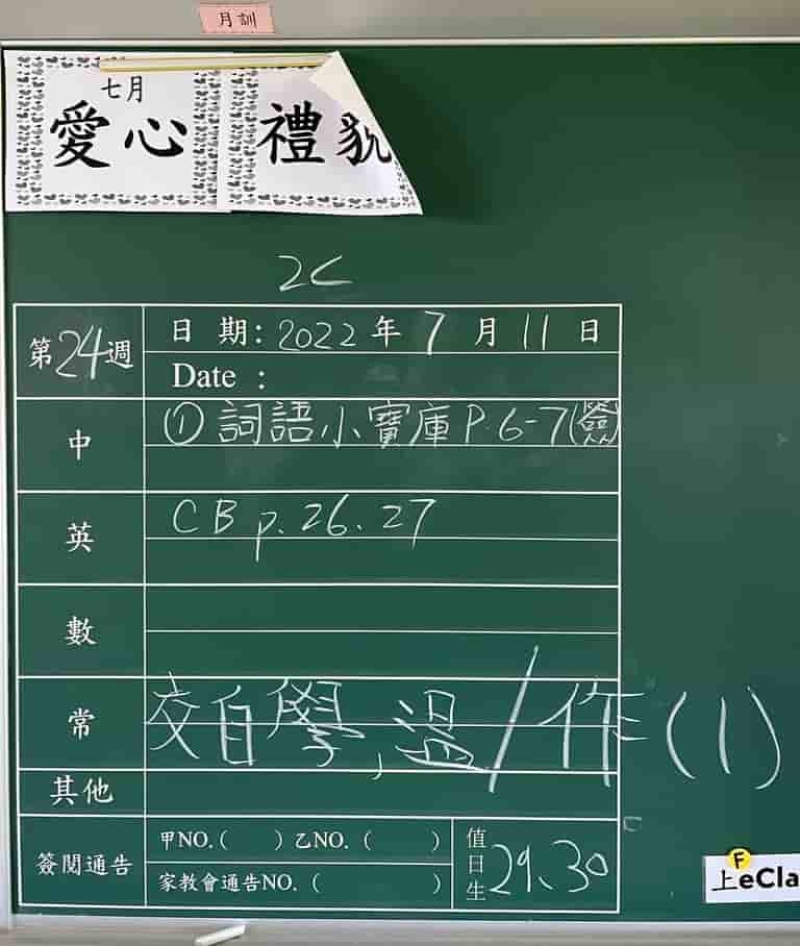 月訓
七月
愛心 禮貌
2C
第24週 日 期: 2022 年 7 月 11 日
Date :
中 ① 詞語小寶庫 P.6-7(簽)
英 CB p.26.27
數
常 交自學,溫/作(1)
其他
簽閱通告 甲NO.( ) 乙NO.( )
家教會通告NO.( )
值日生 29、30
F
上eCla